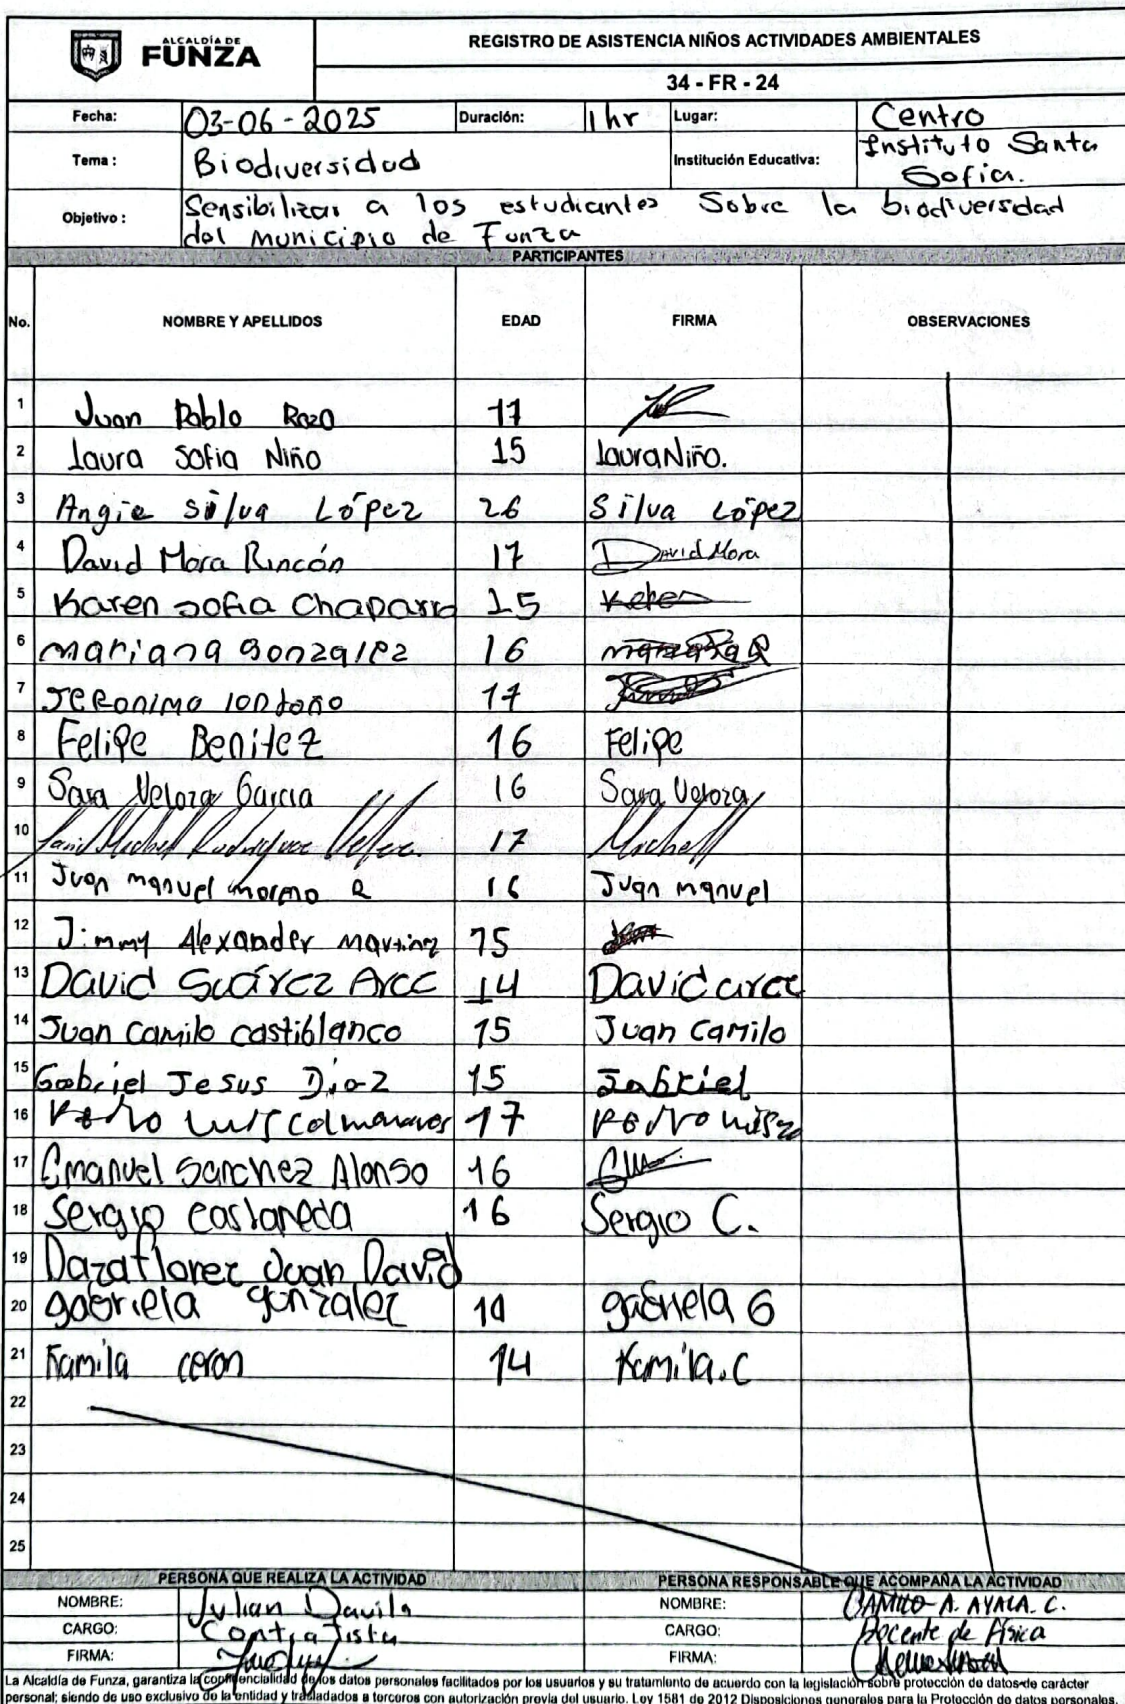 ALCALDÍA DE
FUNZA
REGISTRO DE ASISTENCIA NIÑOS ACTIVIDADES AMBIENTALES
34 - FR - 24
Fecha: 03-06-2025 Duración: 1 hr Lugar: Centro
Tema : Biodiversidad Institución Educativa: Instituto Santa Sofia.
Objetivo : Sensibilizar a los estudiantes Sobre la biodiversidad
del municipio de Funza
PARTICIPANTES
No. NOMBRE Y APELLIDOS EDAD FIRMA OBSERVACIONES
1 Juan Pablo Rozo 17
2 Laura Sofia Niño 15 Laura Niño.
3 Angie Silva López 26 Silva López
4 David Mora Rincón 17 David Mora
5 Karen Sofia Chaparro 15
6 mariana Gonzalez 16
7 Jeronimo londoño 17
8 Felipe Benitez 16 Felipe
9 Sara Veloza Garcia 16 Sara Veloza
10 Michel Rodriguez 17 Michell
11 Juan manuel moreno R 16 Juan manuel
12 Jimmy Alexander Martinez 15
13 David Suárez Arce 14 David arce
14 Juan Camilo castiblanco 15 Juan Camilo
15 Gabriel Jesus Diaz 15 Gabriel
16 Pedro Luis Colmenares 17 Pedro Luis
17 Emanuel Sanchez Alonso 16
18 Sergio Castañeda 16 Sergio C.
19 Daza florez Juan David
20 gabriela gonzalez 14 gabriela G
21 Kamila ceron 14 Kamila.C
22
23
24
25
PERSONA QUE REALIZA LA ACTIVIDAD PERSONA RESPONSABLE QUE ACOMPAÑA LA ACTIVIDAD
NOMBRE: Julian Davila NOMBRE: CAMILO A. AYALA. C.
CARGO: Contratista CARGO: Docente de Física
FIRMA: FIRMA:
La Alcaldía de Funza, garantiza la confidencialidad de los datos personales facilitados por los usuarios y su tratamiento de acuerdo con la legislación sobre protección de datos de carácter
personal; siendo de uso exclusivo de la entidad y trasladados a terceros con autorización previa del usuario. Ley 1581 de 2012 Disposiciones generales para la Protección de datos personales.